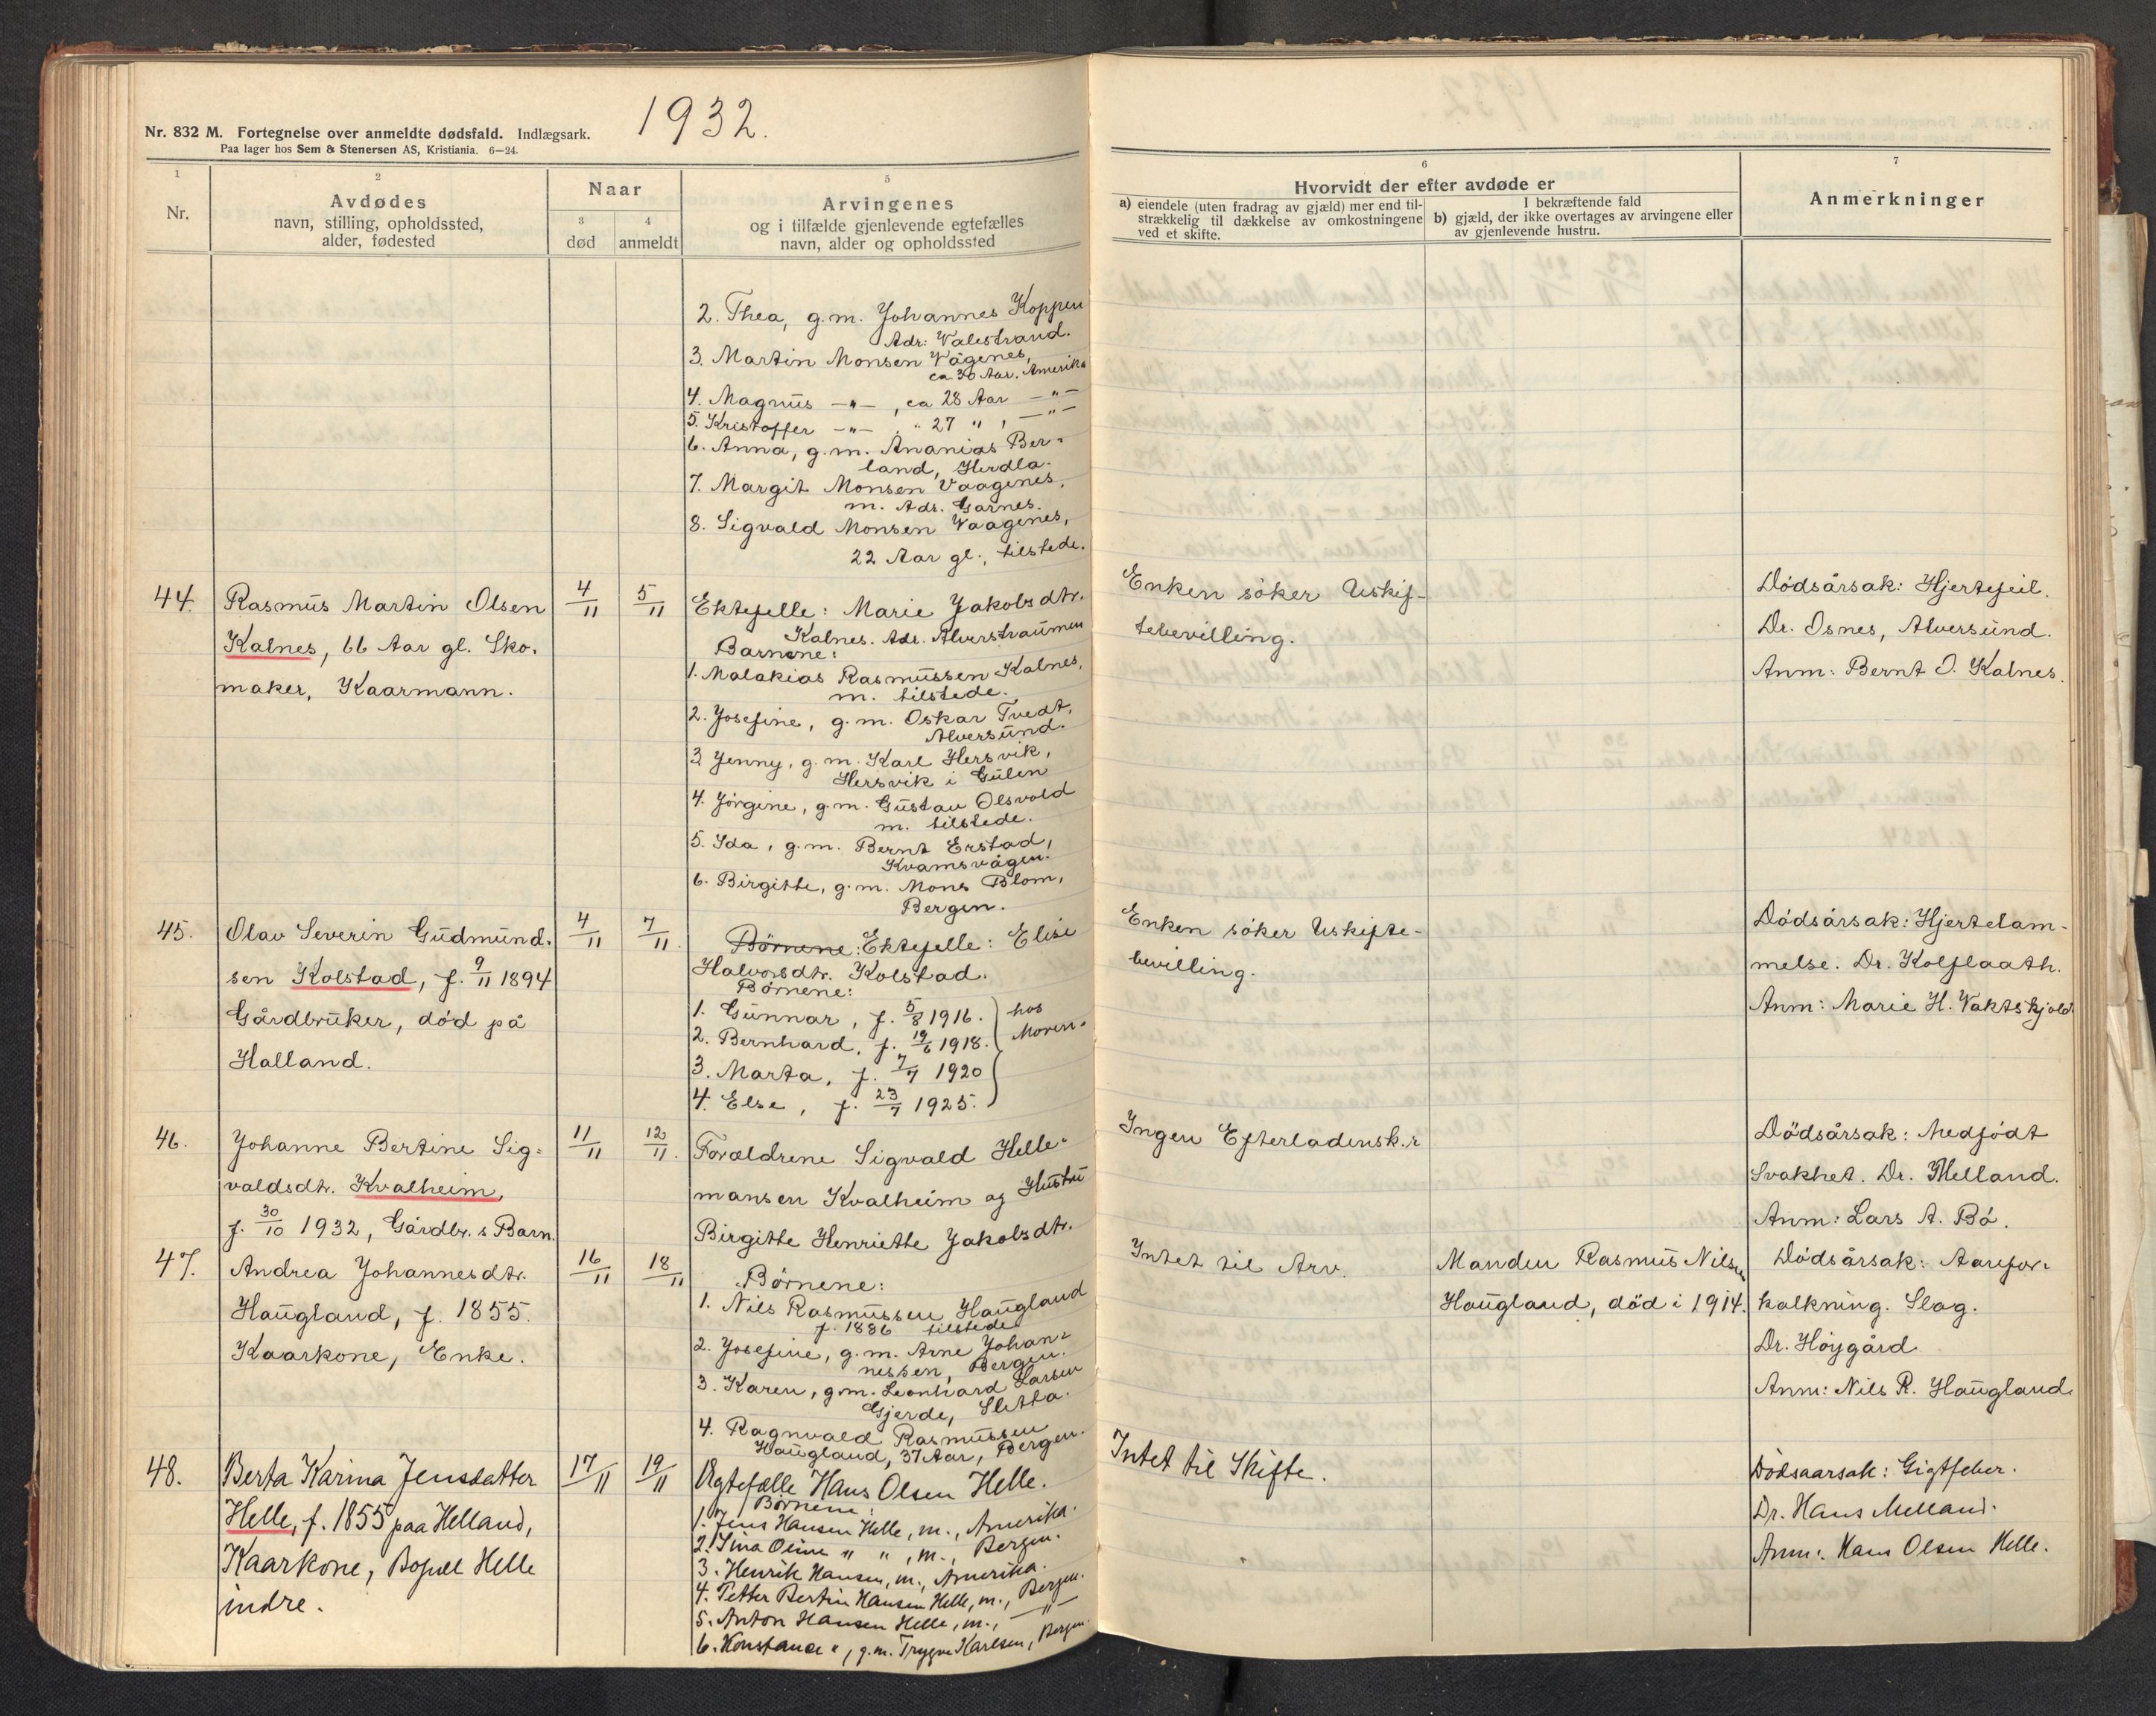 1932.
Nr. 832 M. Fortegnelse over anmeldte dødsfald. Indlægsark.
Paa lager hos Sem & Stenersen AS, Kristiania. 6—24.
1
Nr.
2
Avdødes
navn, stilling, opholdssted,
alder, fødested
Naar
3
død
4
anmeldt
5
Arvingenes
og i tilfælde gjenlevende egtefælles
navn, alder og opholdssted
6
Hvorvidt der efter avdøde er
a) eiendele (uten fradrag av gjæld) mer end til-
strækkelig til dækkelse av omkostningene
ved et skifte.
I bekræftende fald
b) gjæld, der ikke overtages av arvingene eller
av gjenlevende hustru.
7
Anmerkninger
2. Thea, g.m. Johannes Koppen
Adr: Valestrand.
3. Martin Monsen Vågenes,
ca. 30 Aar. Amerika
4. Magnus —"—, ca 28 Aar —"—
5. Kristoffer —"— , " 27 " , —"—
6. Anna, g.m. Ananias Ber-
land, Herdla.
7. Margit Monsen Vaagenes,
m. Adr. Garnes.
8. Sigvald Monsen Vaagenes,
22 Aar gl., tilstede.
44.
Rasmus Martin Olsen
Kalnes, 66 Aar gl. Sko-
maker, Kaarmann.
4/11
5/11
Ektefelle: Marie Jakobsdtr.
Kalnes. Adr. Alverstraumen
Barnene:
1. Malakias Rasmussen Kalnes,
m. tilstede.
2. Josefine, g.m. Oskar Tvedt,
Alversund.
3 Jenny, g.m. Karl Hersvik,
Hersvik i Gulen
4. Jörgine, g.m. Gustav Olsvold
m. tilstede.
5. Ida, g.m. Bernt Erstad,
Kvamsvågen.
6. Birgitte, g.m. Mons Blom,
Bergen.
Enken söker Uskif-
tebevilling.
Dödsårsak: Hjertefeil.
Dr. Osnes, Alversund.
Anm: Bernt O. Kalnes.
45.
Olav Severin Gudmund-
sen Kolstad, f. 9/11 1894
Gårdbruker, död på
Halland.
4/11
7/11.
Börnene: Ektefelle: Elise
Halvorsdtr. Kolstad.
Börnene:
1. Gunnar, f. 5/8 1916.
2. Bernhard, f. 19/6 1918.
3. Marta, f. 7/7 1920
4. Else, f. 23/7 1925.
hos
Moren.
Enken söker Uskifte-
bevilling.
Dödsårsak: Hjertelam-
melse. Dr. Kolflaath.
Anm: Marie H. Vaktskjold
46.
Johanne Bertine Sig-
valdsdtr. Kvalheim,
f. 30/10 1932, Gårdbr.s Barn.
11/11
12/11.
Forældrene Sigvald Helle-
mansen Kvalheim og Hustru
Birgitte Henriette Jakobsdtr.
Ingen Efterladensk.r
Dödsårsak: Medfödt
Svakhet. Dr. Melland.
Anm: Lars A. Bö.
47.
Andrea Johannesdtr.
Haugland, f. 1855.
Kaarkone, Enke.
16/11
18/11
Börnene:
1. Nils Rasmussen Haugland
f. 1886 tilstede
2. Josefine, g.m. Arne Johan-
nessen, Bergen.
3. Karen, g.m. Leonhard Larsen
Gjerde, Sletta.
4. Ragnvald Rasmussen
Haugland, 37 Aar, Bergen.
Intet til Arv.
Manden Rasmus Nilsen
Haugland, död i 1914.
Dödsårsak: Aarefor-
kalkning. Slag.
Dr. Höygård
Anm: Nils R. Haugland.
48.
Berta Karina Jensdatter
Helle, f. 1855 paa Helland,
Kaarkone, Bopæl Helle
indre.
17/11
19/11
Ægtefælle Hans Olsen Helle.
Börnene:
1. Jens Hansen Helle, m., Amerika.
2. Sina Oline " " , m., Bergen.
3. Henrik Hansen, m., Amerika.
4. Petter Bertin Hansen Helle, m., Bergen.
5. Anton Hansen Helle, m., —"—
6. Konstance ", g.m. Trygve Karlsen, Bergen.
Intet til Skifte.
Dödsaarsak: Gigtfeber.
Dr. Hans Melland.
Anm: Hans Olsen Helle.